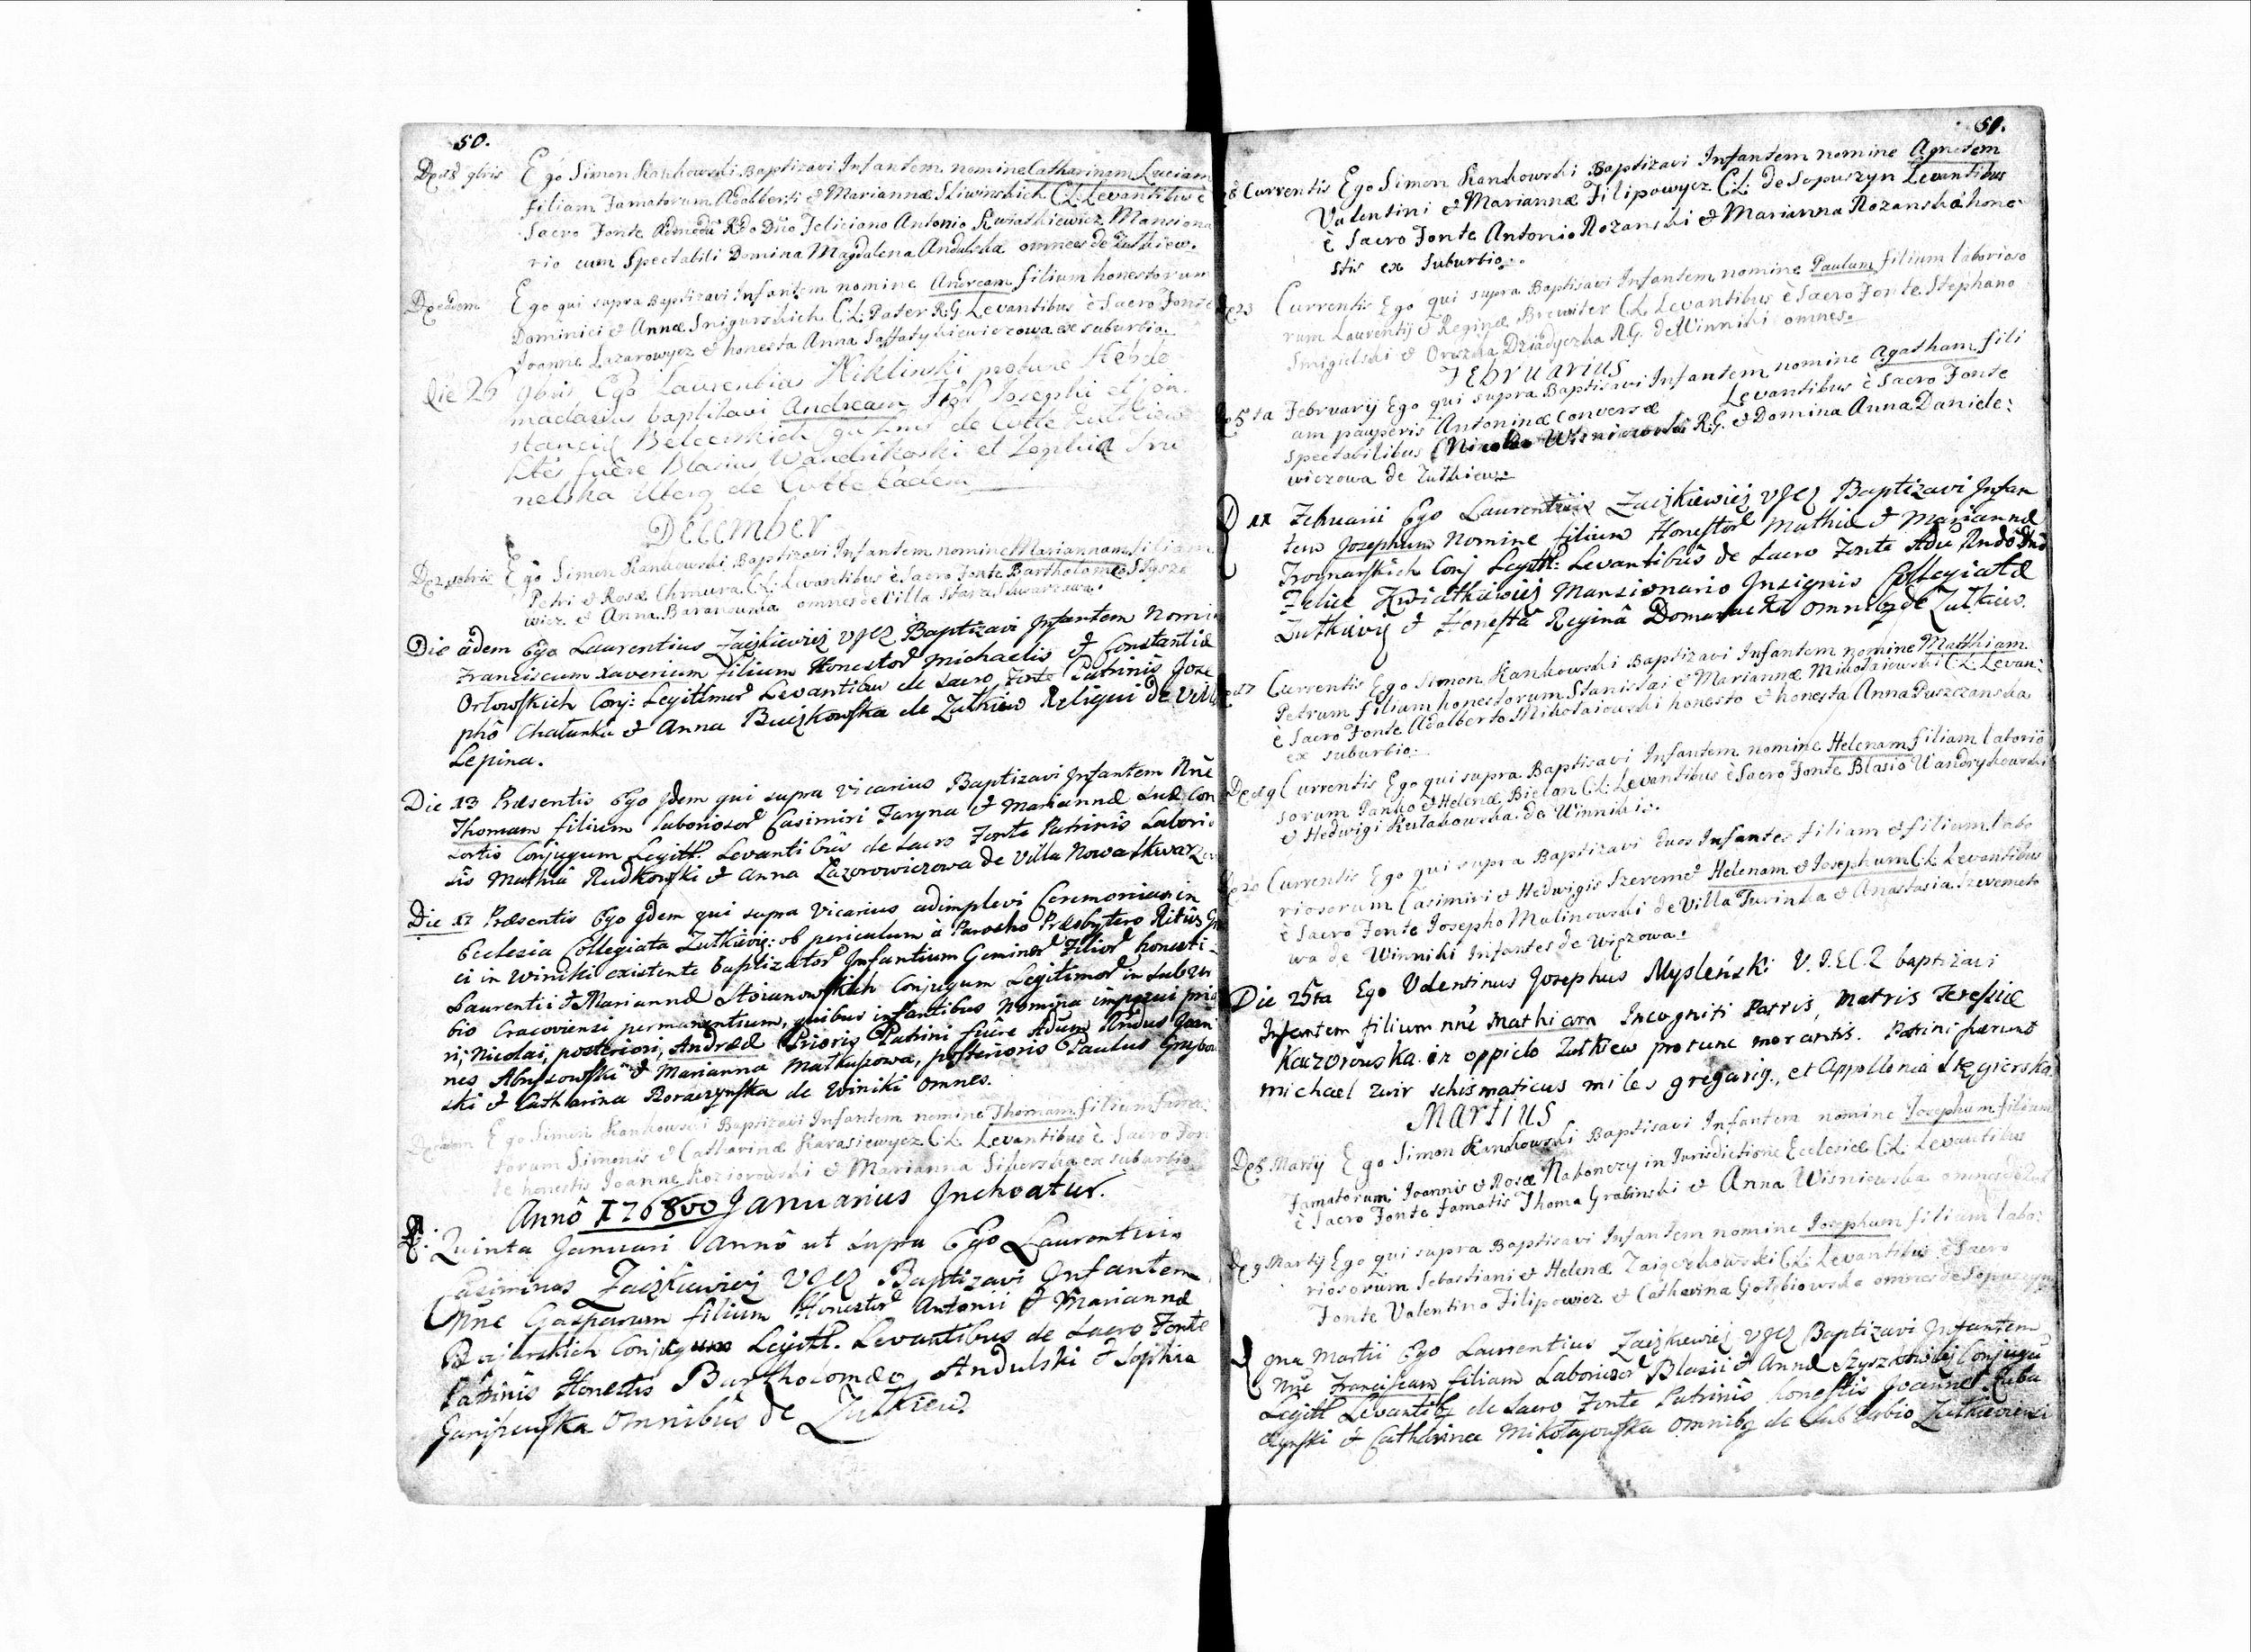 50.
Die 18 9bris Ego Simon Kankowski Baptizavi Infantem nomine Catharinam Luciam
filiam Famatorum Adalberti et Mariannæ Sliwinskich C.L. Levantibus è
Sacro Fonte Admodu Rdo Dno Feliciano Antonio Kwiatkiewicz Mansiona
rio cum Spectabili Domina Magdalena Andulska omnes de Zulkiew.
Die eadem Ego qui supra Baptizavi Infantem nomine Andream filium honestorum
Dominici et Annæ Snigurskich C.L. Pater R.G. Levantibus è Sacro Fonte
Joanne Lazarowycz et honesta Anna ex suburbio.
Die 26 9bris Ego Laurentius Niklinski pro tunc Hebdo
madarius baptizavi Andream Josephi et Con
stanciæ Belcerskich de Zulkiew
fuere Blasius Wandrikoski et Zophia
de eadem
December
Die 2 xbris Ego Simon Kankowski Baptizavi Infantem nomine Mariannam filiam
Petri et Rosæ Chmura C.L. Levantibus è Sacro Fonte Bartholomeo
wicz et Anna Baranowna omnes de Villa Stara Skwarzawa.
Die eâdem Ego Laurentius Zaiżkiewicz VJCZ Baptizavi Infantem Nomi
Franciscum Xaverium filium Honestor Michaelis et Constantiæ
Orłowskich Conj: Legittimor Levantibus de Sacro Fonte Patrinis Jose
phô Chałunka et Anna Buczkowska de Zulkiew Reliqui de Villa
Lepina.
Die 13 Præsentis Ego Jdem qui supra Vicarius Baptizavi Infantem Nne
Thomam filium Laboriosor Casimiri Faryna et Mariannæ Suæ Con
sortis Conjugum Legitt. Levantibus de Sacro Fonte Patrinis Laborio
sis Mathiâ Rudkowski et Anna Lazorowiczowa de Villa Nowa Skwarzaw
Die 17 Præsentis Ego Jdem qui supra Vicarius adimplevi Ceremonias in
Ecclesia Collegiata Zulkievie: ob periculum à Parocho Præsbytero Ritûs Gr
ci in Winiki existente baptizator Infantium Geminor Filior honesti
Laurentii et Mariannæ Stoianowskich Conjugum Legitimor in Subur
bio Cracoviensi permanentium, quibus infantibus Nomina imposui prio
ri, Nicolai, posteriori, Andreæ Prioris Patrini fuêre Adum Rndus Joan
nes et Marianna Matkupowa, posterioris Paulus
ski et Catharina Boraczynska de Winiki omnes.
Die eadem Ego Simon Kankowski Baptizavi Infantem nomine Thomam filium Fama
torum Simonis et Catharinæ Karasiewycz C.L. Levantibus è Sacro Fon
te honestis Joanne Koziorowski et Marianna Sikorska ex suburbio
Annô 1768vo Januarius Inchoatur.
Quinta Januarii Annô ut supra Ego Laurentius
Casimirus Zaiżkiewicz VJCZ Baptizavi Infantem
Nne Gasparum filium Honestor Antonii et Mariannæ
Bojarskich Conjugum Legitt. Levantibus de Sacro Fonte
Patrinis Honestis Bartholomæo Andulski et Sophia
omnibus de Zulkiew.
51.
Currentis Ego Simon Kankowski Baptizavi Infantem nomine Agnetem
Valentini et Mariannæ Filipowycz C.L. de Sopuszyn Levantibus
è Sacro Fonte Antonio Rozanski et Marianna Rozanska hone
stis ex Suburbio.
Die 23 Currentis Ego qui supra Baptisavi Infantem nomine Paulum filium laborioso
rum Laurentij et Reginæ Brewiter C.L. Levantibus è Sacro Fonte Stephano
Smigielski et Oryszka Dziadyczka R.G. de Winniki omnes.
Februarius
Die 5ta Februarij Ego qui supra Baptisavi Infantem nomine Agatham fili
am pauperis Antoninæ conversæ Levantibus è Sacro Fonte
Spectabilibus Nicolao Wisniowski R.G. et Domina Anna Daniele:
wiczowa de Zulkiew.
D 11 Februarii Ego Laurentius Zaiżkiewicz VJCZ Baptizavi Infan
tem Josephum Nomine filium Honestor Mathiæ et Mariannæ
Conj Legitt: Levantibus de Sacro Fonte Adu Rndo Dno
Felice Kwiatkiewicz Mansionario Insignis Collegiatæ
Zulkiev et Honestâ Reginâ Domaracka omnibus de Zulkiew.
Die 17 Currentis Ego Simon Kankowski Baptizavi Infantem nomine Matthiam
Petrum filium honestorum Stanislai et Mariannæ Mikołaiewski C.L. Levan:
è Sacro Fonte Adalberto Mikołaiewski honesto et honesta Anna Puszczanska
ex suburbio.
Die 19 Currentis Ego qui supra Baptisavi Infantem nomine Helenam filiam laborio
sorum Panko et Helenæ Bielan C.L. Levantibus è Sacro Fonte Blasio Wandrykowski
et Hedwigi Kulakowska de Winniki.
Die 20 Currentis Ego qui supra Baptisavi duos Infantes filiam et filium labo
riosorum Casimiri et Hedwigis Szeremet Helenam et Josephum C.L. Levantibus
è Sacro Fonte Josepho Malinowski de Villa Turinka et Anastasia Szeremeto
wa de Winniki Infantes de Wiązowa.
Die 25ta Ego Valentinus Josephus Mysleński V.I.E.C.Z baptizavi
Infantem filium nne Mathiam Incogniti Patris, Matris Teresiæ
Kazorowska in oppido Zulkiew protunc morantis. Patrini fuerunt
Michael zwir schismaticus miles gregarig, et Appollonia Stręgierska.
Martius
Die 5 Martij Ego Simon Kankowski Baptisavi Infantem nomine Josephum filium
Famatorum Joannis et Rosæ Nabonczy in Jurisdictione Ecclesiæ C.L. Levantibus
è Sacro Fonte Famatis Thoma Grabinski et Anna Wisniewska omnes de Zul
Die 9 Martij Ego qui supra Baptisavi Infantem nomine Josephum filium labo:
riosorum Sebastiani et Helenæ Zaigczkowski C.L. Levantibus è Sacro
Fonte Valentino Filipowicz et Catharina Gołębiowska omnes de Sopuszyn
9na Martii Ego Laurentius Zaiżkiewicz VJCZ Baptizavi Infantem
Nne Franciscam filiam Laboriosor Blasii et Annæ Conjugu
Legitt Levantibus de Sacro Fonte Patrinis honestis Joanne
et Catharina Mikołajowska omnibus de Suburbio Zulkieviensi